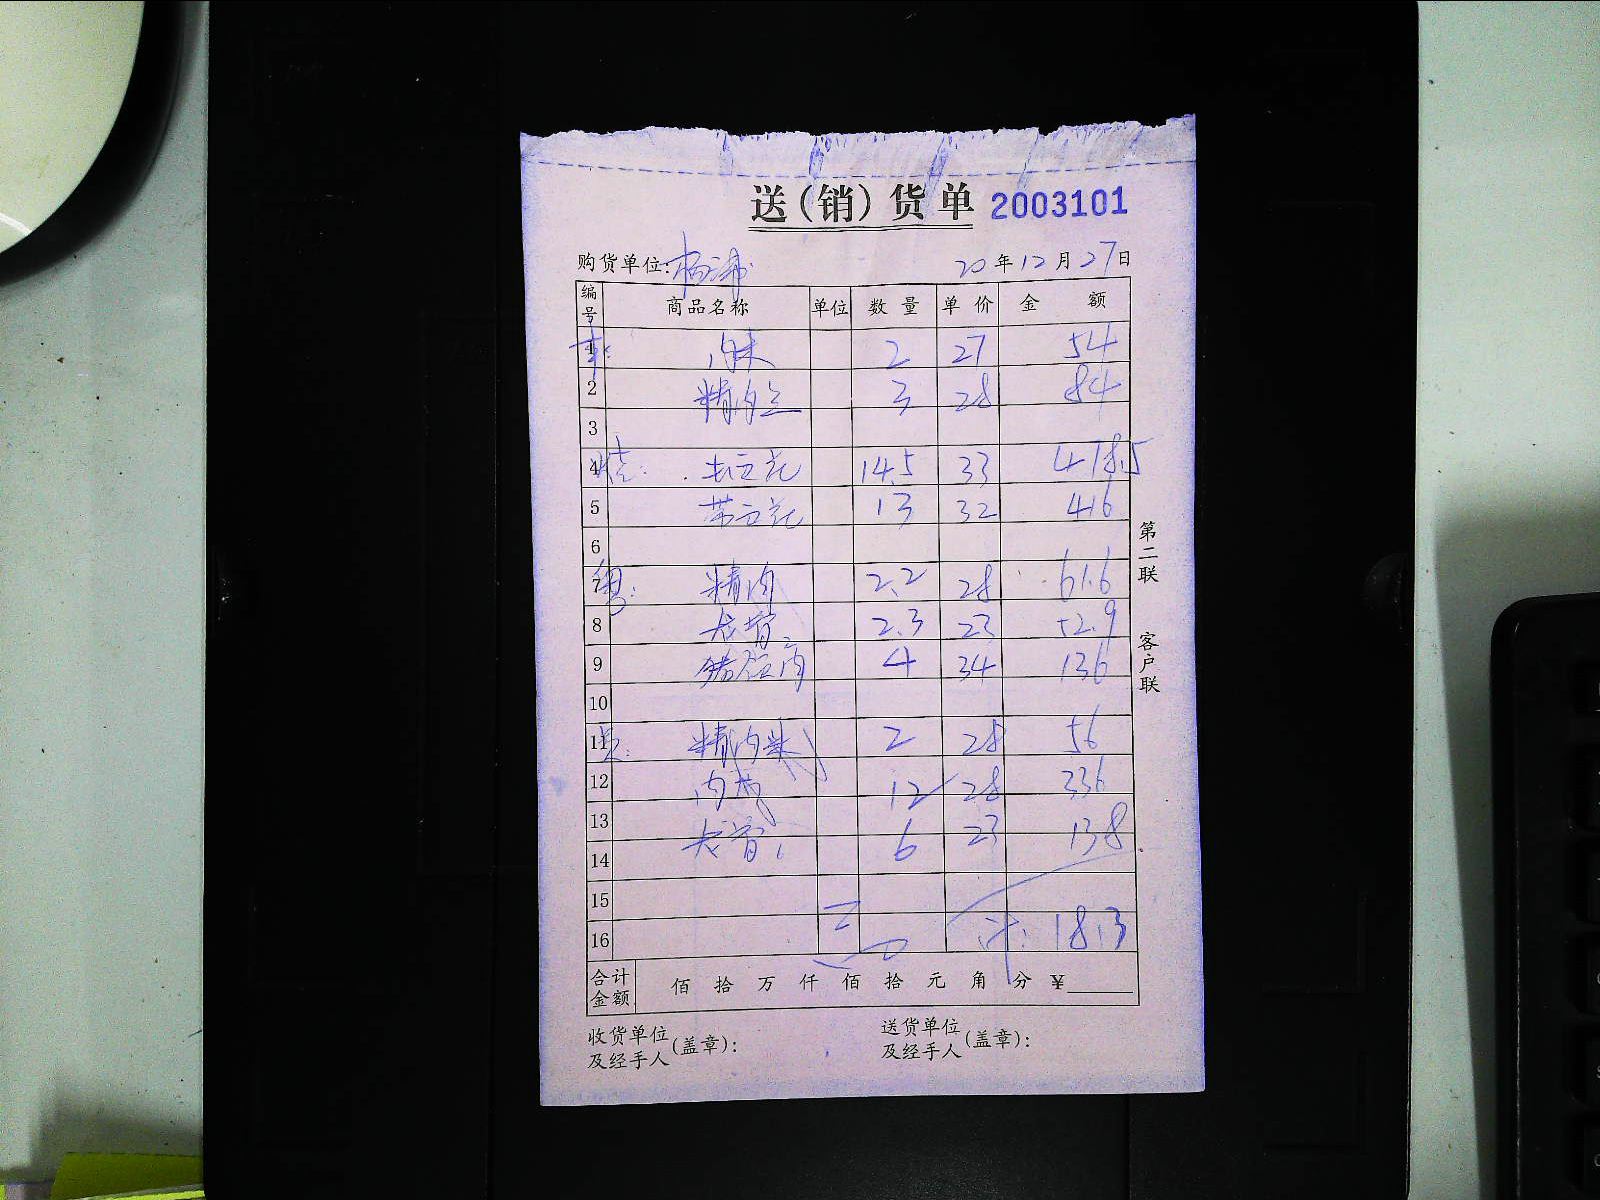 送(销)货单 2003101
购货单位: 杨浦 20年12月27日
编号 商品名称 单位 数量 单价 金额
1 肉末 2 27 54
2 精肉丝 3 28 84
3
4 14.5 33 478.5
5 带立花 13 32 416
6
7 粤: 精肉 2.2 28 61.6
8 2.3 23 52.9
9 4 34 136
10
11 点: 精肉米 2 28 56
12 肉 12 28 336
13 6 23 138
14
15
16 计: 1813
合计金额 佰 拾 万 仟 佰 拾 元 角 分 ¥
收货单位及经手人(盖章): 送货单位及经手人(盖章):
第二联 客户联